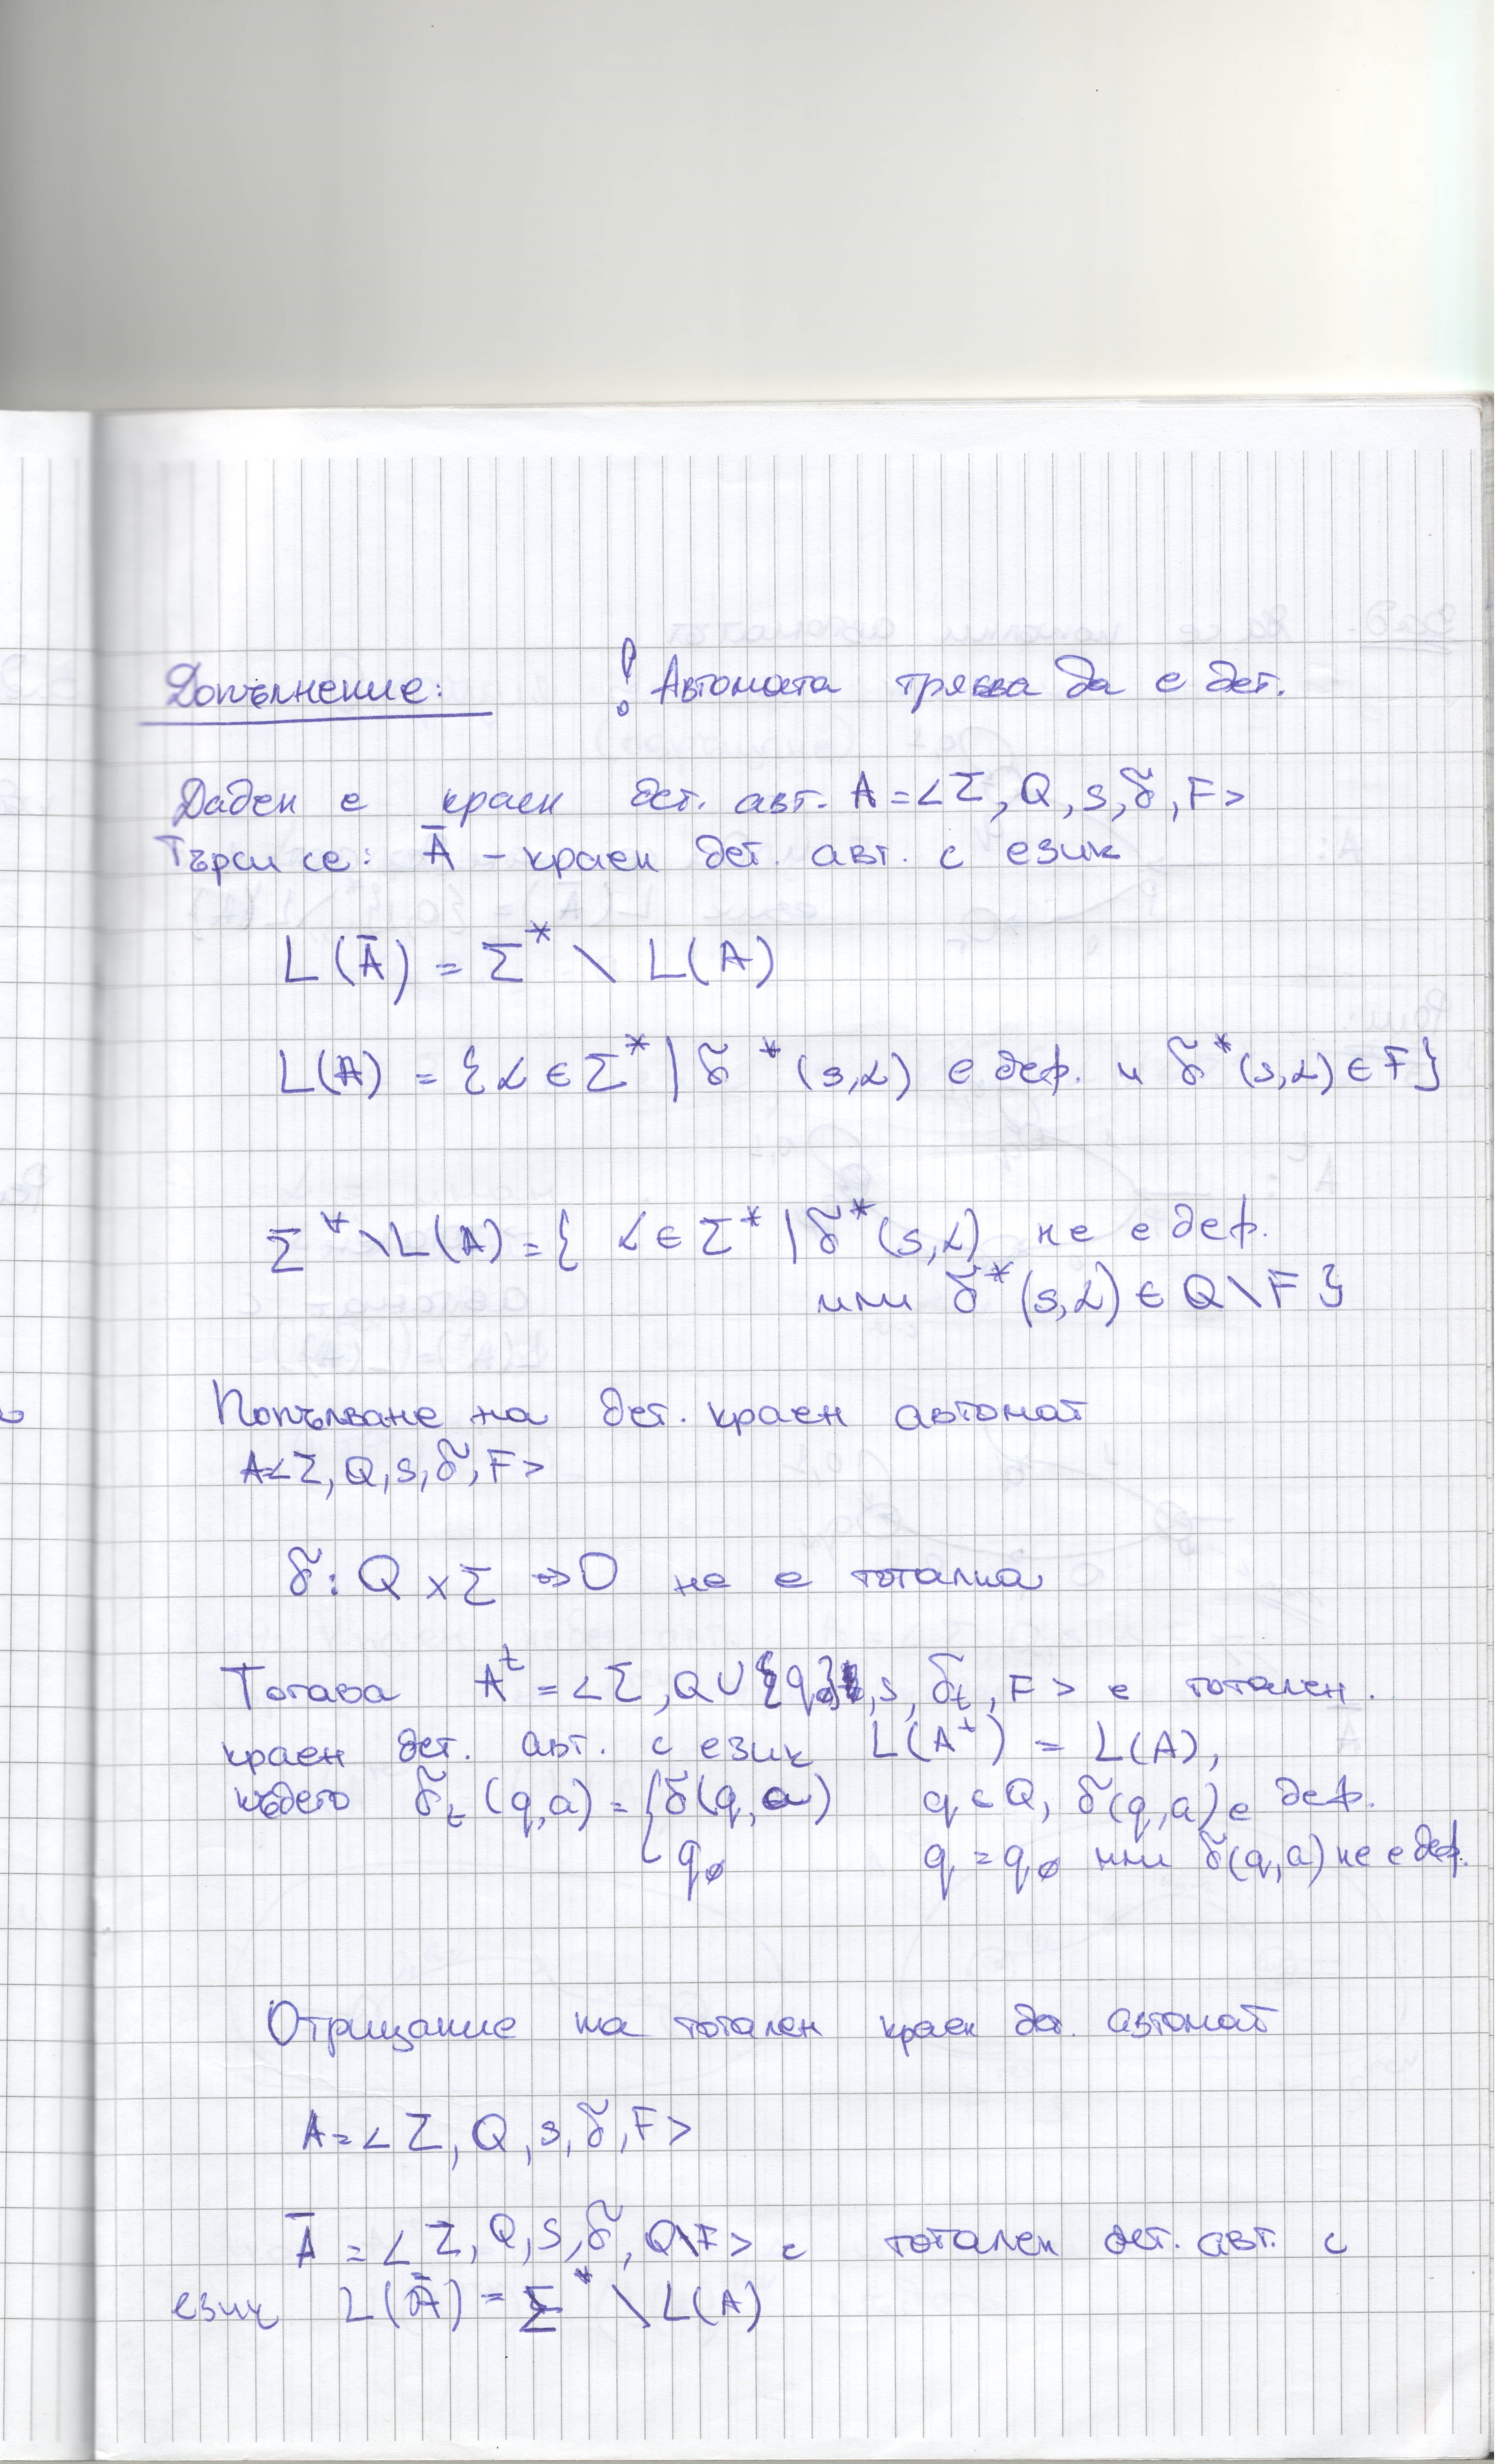 Допълнение: ! Автомата трябва да е дет.
Даден е краен дет. авт. A = <Σ, Q, s, δ, F>
Търси се: Ā – краен дет. авт. с език
L(Ā) = Σ* \ L(A)
L(A) = {α ∈ Σ* | δ*(s,α) е деф. и δ*(s,α) ∈ F}
Σ* \ L(A) = { α ∈ Σ* | δ*(s,α) не е деф.
или δ*(s,α) ∈ Q \ F }
Попълване на дет. краен автомат
A=<Σ, Q, s, δ, F>
δ: Q × Σ → Q не е тотална
Тогава Aᵗ = <Σ, Q ∪ {q∅}, s, δₜ, F> е тотален.
краен дет. авт. с език L(Aᵗ) = L(A),
където δₜ(q,a) = { δ(q,a) q ∈ Q, δ(q,a) е деф.
q∅ q = q∅ или δ(q,a) не е деф.
Отрицание на тотален краен дет. автомат
A = <Σ, Q, s, δ, F>
Ā = <Σ, Q, s, δ, Q\F> е тотален дет. авт. с
език L(Ā) = Σ* \ L(A)